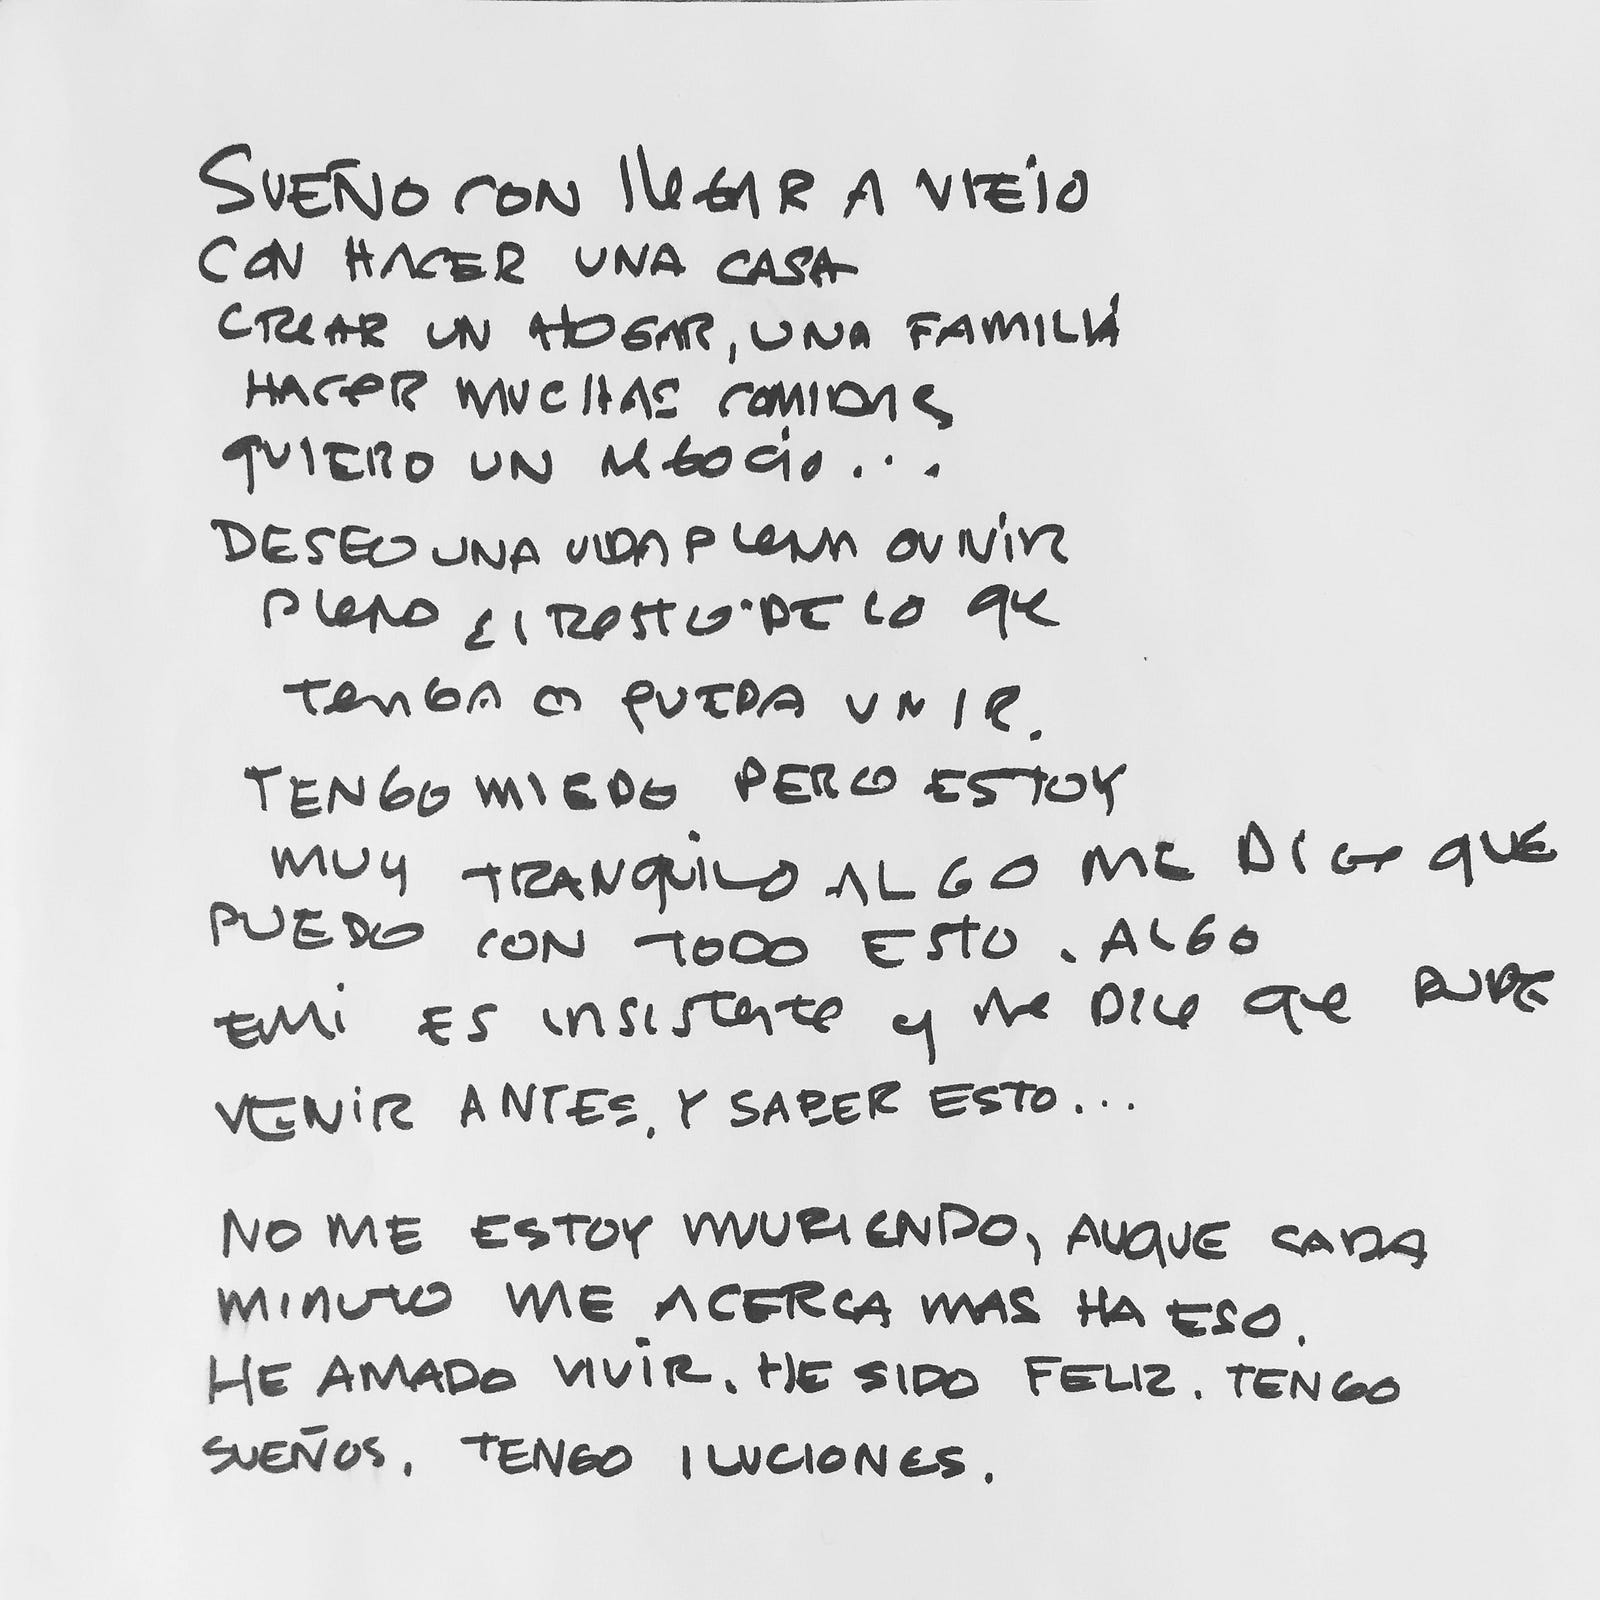 SUEÑO CON llEGAR A VIEJO
CON HACER UNA CASA
CREAR UN HOGAR, UNA FAMILIA
HACER MUCHAS COMIDAS
QUIERO UN NEGOCIO...
DESEO UNA VIDA PLENA O VIVIR
PLENO El RESTO DE LO QUE
TENGA O PUEDA VIVIR.
TENGO MIEDO PERO ESTOY
MUY TRANQUILO ALGO ME DICE QUE
PUEDO CON TODO ESTO. ALGO
EMI ES INSISTENTE y ME DICE QUE PUDE
VENIR ANTES, Y SABER ESTO...
NO ME ESTOY MURIENDO, AUQUE CADA
MINUTO ME ACERCA MAS HA ESO.
HE AMADO VIVIR. HE SIDO FELIZ. TENGO
SUEÑOS. TENGO ILUCIONES.